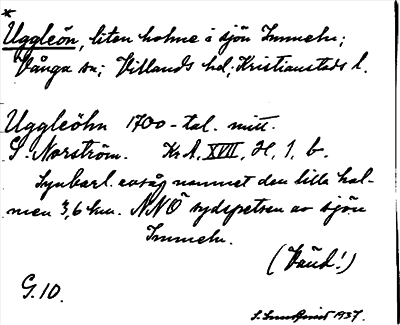 *
Uggleön, liten holme i sjön Immeln;
Vånga sn; Villands hd; Kristianstads l.
Uggleöhn 1700-tal. mitt.
S. Norström. Kr A, XVII, H, 1, b.
Synbarl. avsåg namnet den lilla hol-
men 3,6 km. NNÖ sydspetsen av sjön
Immeln.
(Vänd!)
G. 10.
1937.